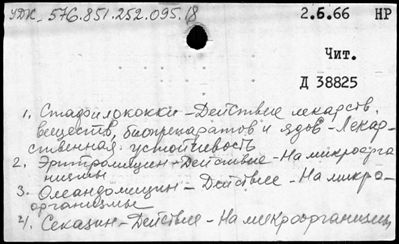 УДК 576.851.252.095.18 2.6.66 НР
Чит.
Д 38825
1. Стафилококки - Действие лекарств.
веществ, биопрепаратов и ядов - Лекар-
ственная устойчивость
2. Эритромицин - Действие - На микроорга
низмы
3. Олеандомицин - Действие - На микро-
организмы
4. Секазин - Действие - На микроорганизмы